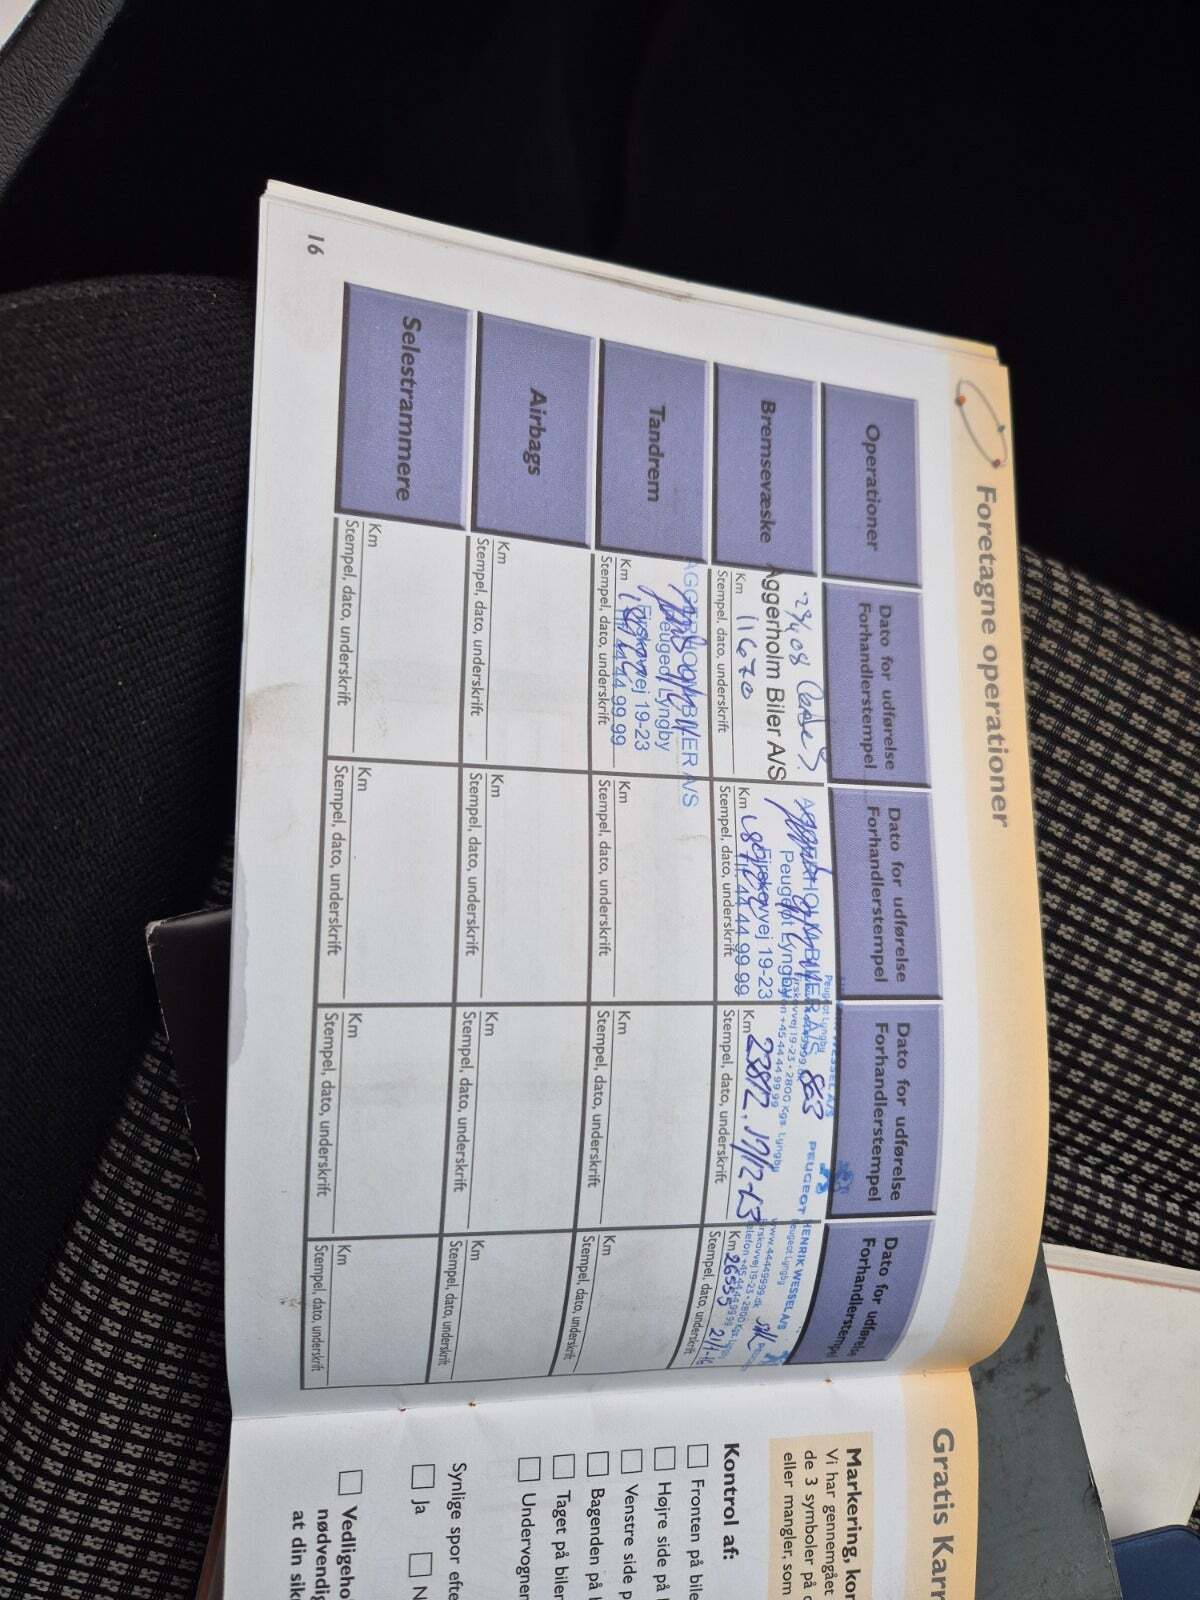 Foretagne operationer
Operationer
Dato for udførelse
Forhandlerstempel
Dato for udførelse
Forhandlerstempel
Dato for udførelse
Forhandlerstempel
Dato for udførelse
Forhandlerstempel
Bremsevæske
Aggerholm Biler A/S
Km 11670
Stempel, dato, underskrift
Peugeot Lyngby
Firskovvej 19-23
Tlf. 44 44 99 99
Km
Stempel, dato, underskrift
Peugeot Lyngby
Firskovvej 19-23 • 2800 Kgs. Lyngby
Telefon +45 44 44 99 99
863
Km 23812. 17/12-13
Stempel, dato, underskrift
PEUGEOT HENRIK WESSEL A/S
Peugeot Lyngby
www.44449999.dk
Firskovvej 19-23 • 2800 Kgs. Lyngby
Telefon +45 44 44 99 99
Km 26555
Stempel, dato, underskrift
Tandrem
AGGERHOLM BILER A/S
Peugeot Lyngby
Firskovvej 19-23
Tlf. 44 44 99 99
Km
Stempel, dato, underskrift
Km
Stempel, dato, underskrift
Km
Stempel, dato, underskrift
Km
Stempel, dato, underskrift
Airbags
Km
Stempel, dato, underskrift
Km
Stempel, dato, underskrift
Km
Stempel, dato, underskrift
Km
Stempel, dato, underskrift
Selestrammere
Km
Stempel, dato, underskrift
Km
Stempel, dato, underskrift
Km
Stempel, dato, underskrift
Km
Stempel, dato, underskrift
16
Gratis
Markering, kon
Vi har gennemgået
de 3 symboler på
eller mangler, som
Kontrol af:
Fronten på bile
Højre side på
Venstre side p
Bagenden på
Taget på biler
Undervogner
Synlige spor efte
Ja
N
Vedligeho
nødvendig
at din sik